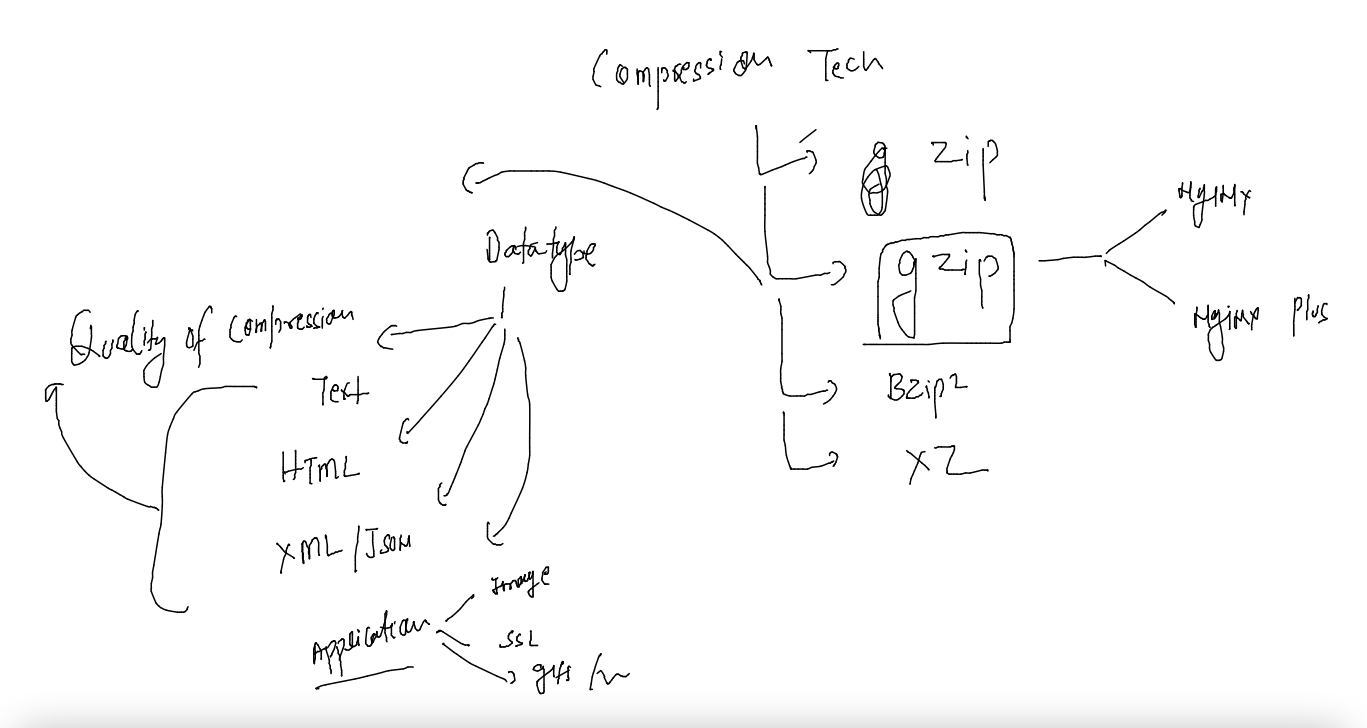 Compression Tech
zip
g zip
Nginx
Nginx Plus
Bzip2
XZ
Datatype
Quality of Compression
Text
HTML
XML/Json
Application
Image
SSL
gifs